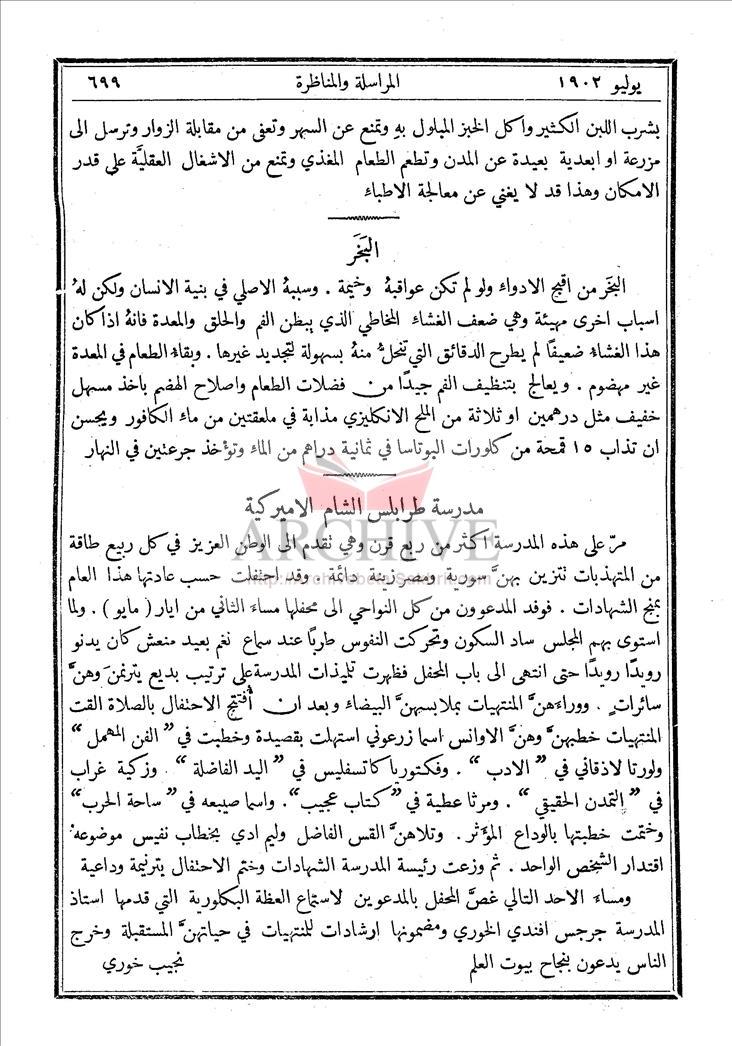 يوليو ١٩٠٢ المراسلة والمناظرة ٦٩٩
بشرب اللبن الكثير واكل الخبز المبلول به وتمنع عن السهر وتعفى من مقابلة الزوار وترسل الى
مزرعة او ابعدية بعيدة عن المدن وتطعم الطعام المغذي وتمنع من الاشغال العقليَّة على قدر
الامكان وهذا قد لا يغني عن معالجة الاطباء
البَخَر
البَخَر من اقبح الادواء ولو لم تكن عواقبهُ وخيمة . وسببهُ الاصلي في بنية الانسان ولكن لهُ
اسباب اخرى مهيئة وهي ضعف الغشاء المخاطي الذي يبطن الفم والحلق والمعدة فانهُ اذا كان
هذا الغشاء ضعيفًا لم يطرح الدقائق التي تنحلُّ منهُ بسهولة لتجديد غيرها . وبقاء الطعام في المعدة
غير مهضوم . ويعالج بتنظيف الفم جيدًا من فضلات الطعام واصلاح الهضم باخذ مسهل
خفيف مثل درهمين او ثلاثة من الملح الانكليزي مذابة في ملعقتين من ماء الكافور ويحسن
ان تذاب ١٥ قمحة من كلورات البوتاسا في ثمانية دراهم من الماء وتؤخذ جرعتين في النهار
مدرسة طرابلس الشام الاميركية
ARCHIVE
مرَّ على هذه المدرسة اكثر من ربع قرن وهي تقدم الى الوطن العزيز في كل ربيع طاقة
من المتهذبات تتزين بهنَّ سورية ومصر زينة دائمة . وقد احتفلت حسب عادتها هذا العام
بمنح الشهادات . فوفد المدعوون من كل النواحي الى محفلها مساء الثاني من ايار ( مايو ) . ولما
استوى بهم المجلس ساد السكون وتحركت النفوس طربًا عند سماع نغم بعيد منعش كان يدنو
رويدًا رويدًا حتى انتهى الى باب المحفل فظهرت تلميذات المدرسة على ترتيب بديع يترنمن وهنَّ
سائرات . ووراءهنَّ المنتهيات بملابسهنَّ البيضاء وبعد ان أُفتتح الاحتفال بالصلاة القت
المنتهيات خطبهنَّ وهنَّ الاوانس اسما زرعوني استهلت بقصيدة وخطبت في " الفن المهمل "
ولورتا لاذقاني في " الادب " . وفكتوريا كاتسفليس في " اليد الفاضلة " . وزكية غراب
في " التمدن الحقيقي " . ومرثا عطية في " كتاب عجيب " . واسما صيبعه في " ساحة الحرب "
وختمت خطبتها بالوداع المؤثر . وتلاهنَّ القس الفاضل وليم ادي بخطاب نفيس موضوعهُ
اقتدار الشخص الواحد . ثم وزعت رئيسة المدرسة الشهادات وختم الاحتفال بترنيمة وداعية
ومساء الاحد التالي غصَّ المحفل بالمدعوين لاستماع العظة البكلورية التي قدمها استاذ
المدرسة جرجس افندي الخوري ومضمونها ارشادات للمنتهيات في حياتهنَّ المستقبلة وخرج
الناس يدعون بنجاح بيوت العلم نجيب خوري